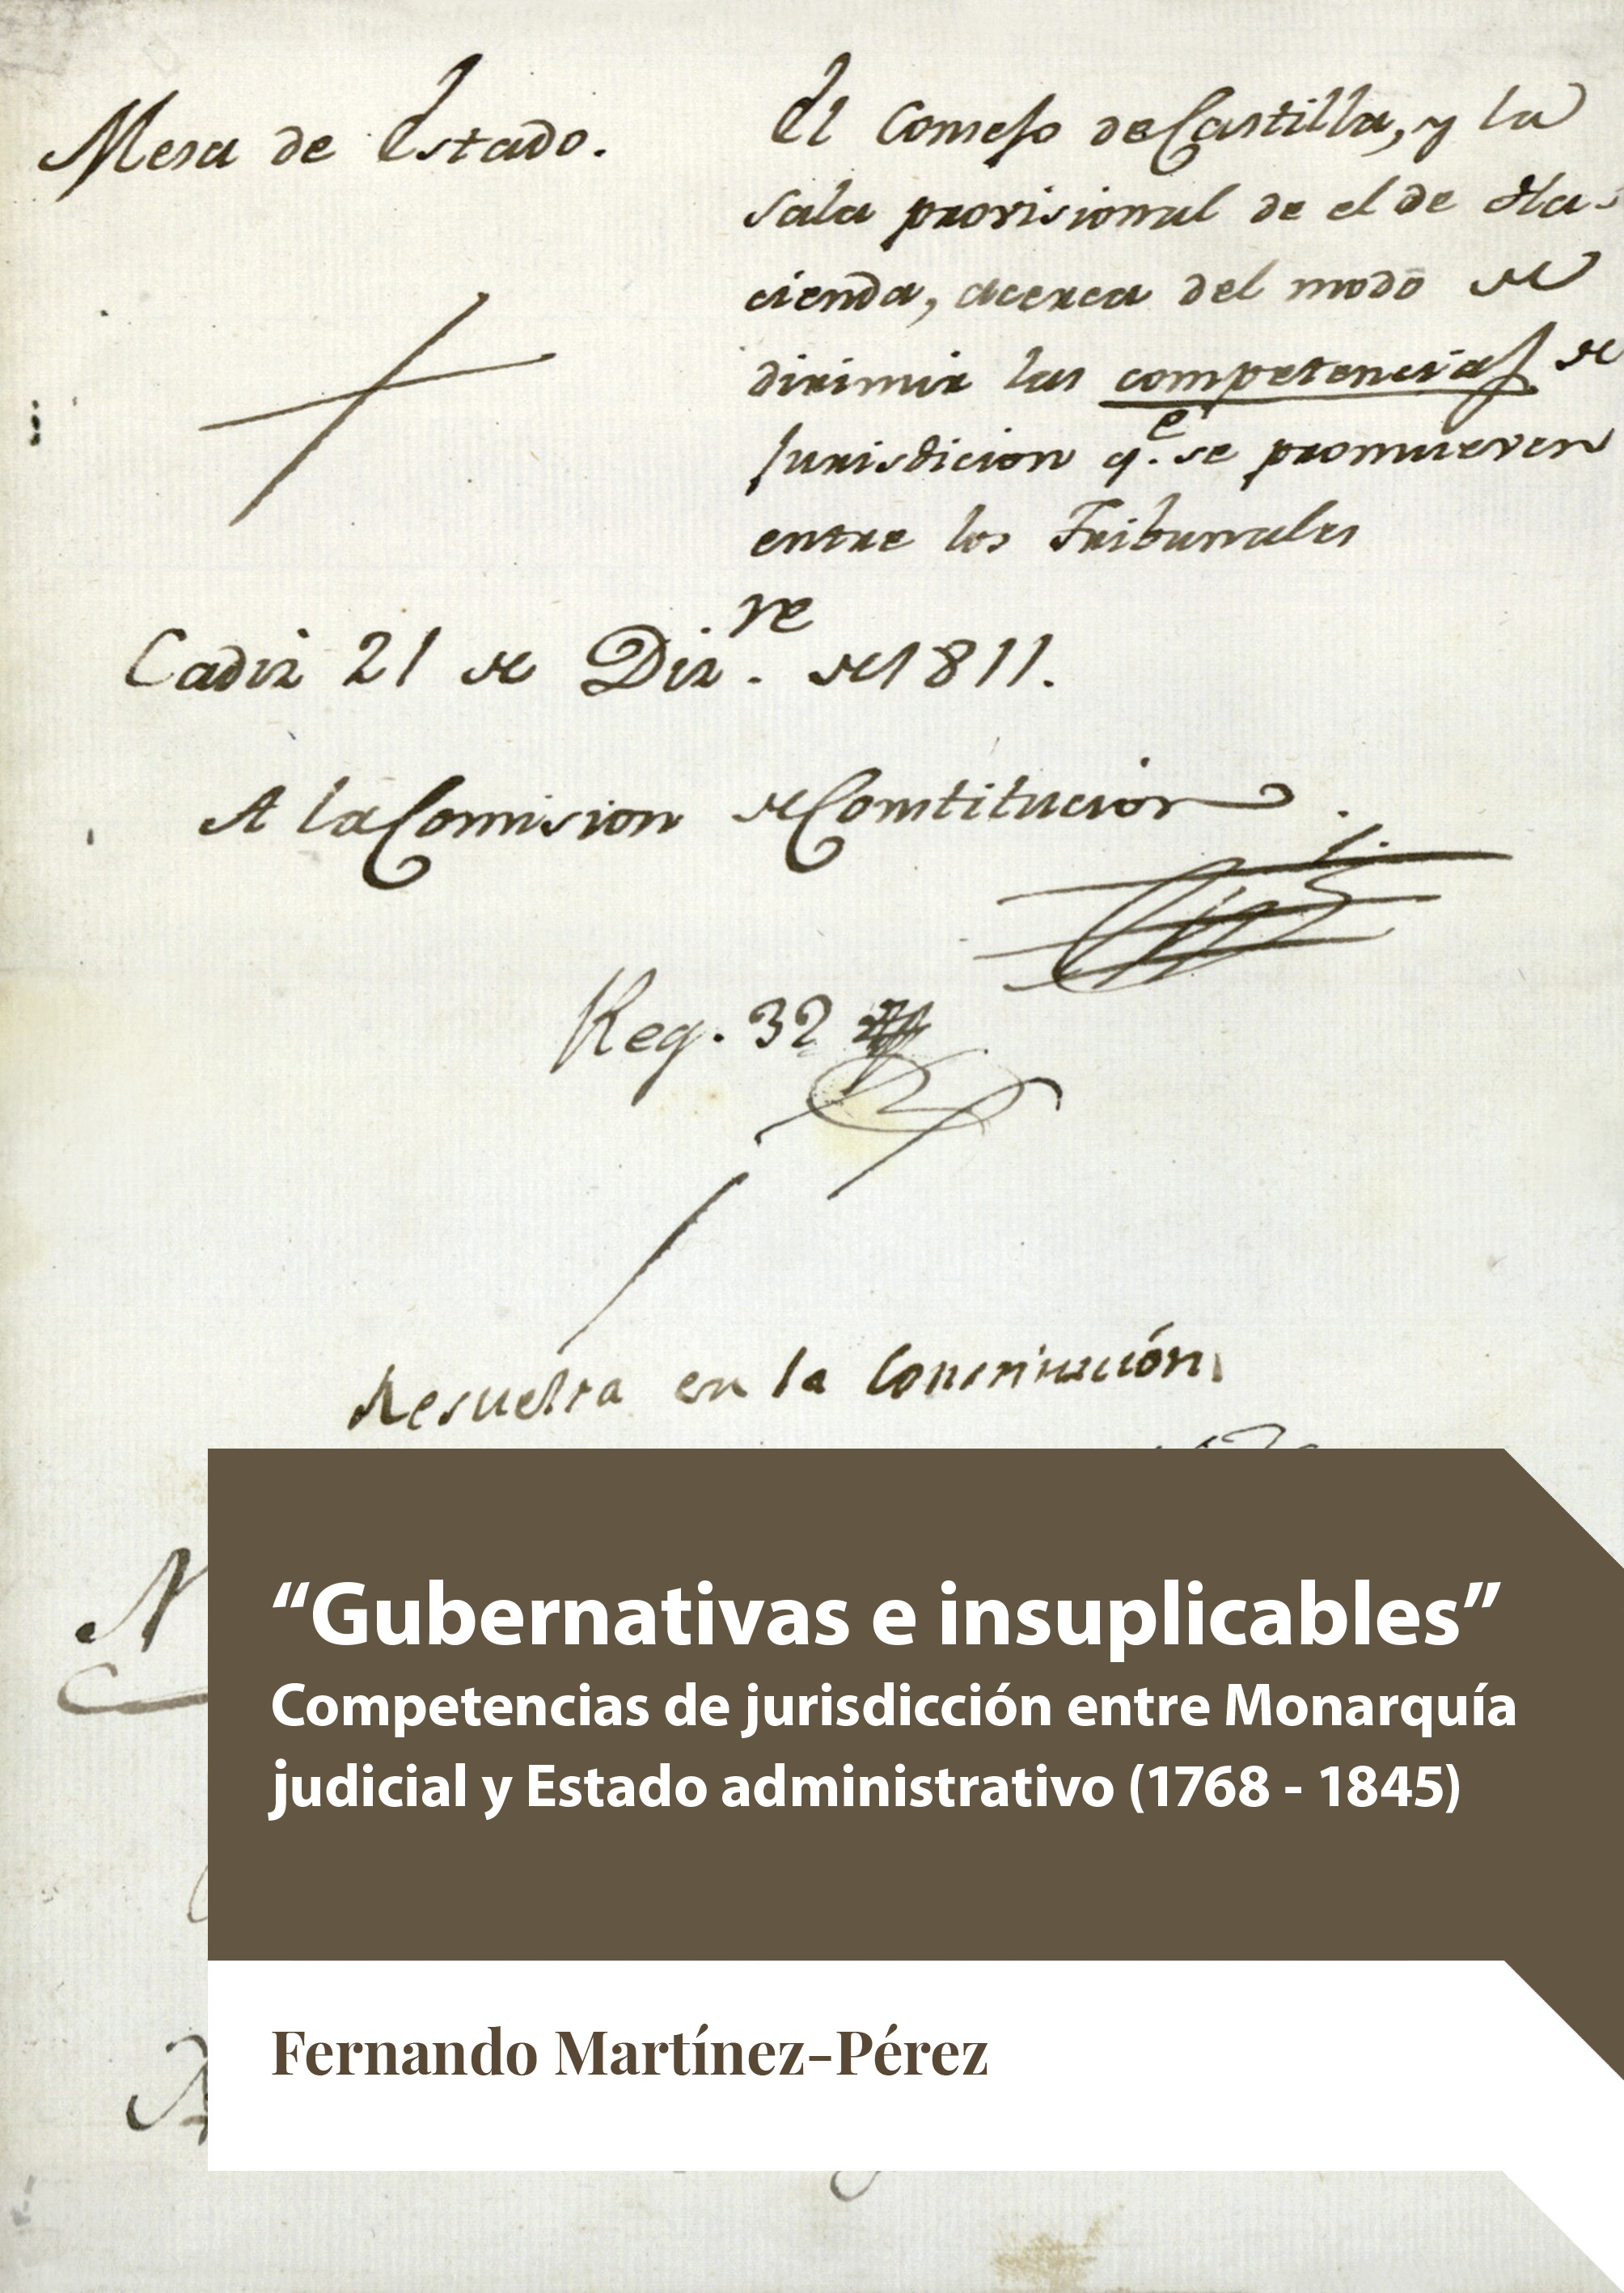 Mesa de Estado.
El Consejo de Castilla, y la
sala provisional de el de Ha=
cienda, acerca del modo de
dirimir las competencias de
Jurisdicion q.e se promueven
entre los Tribunales
Cadiz 21 de Diz.re de 1811.
A la Comision de Constitucion.
Reg. 32
Resuelta en la Constitución
“Gubernativas e insuplicables”
Competencias de jurisdicción entre Monarquía
judicial y Estado administrativo (1768 - 1845)
Fernando Martínez-Pérez